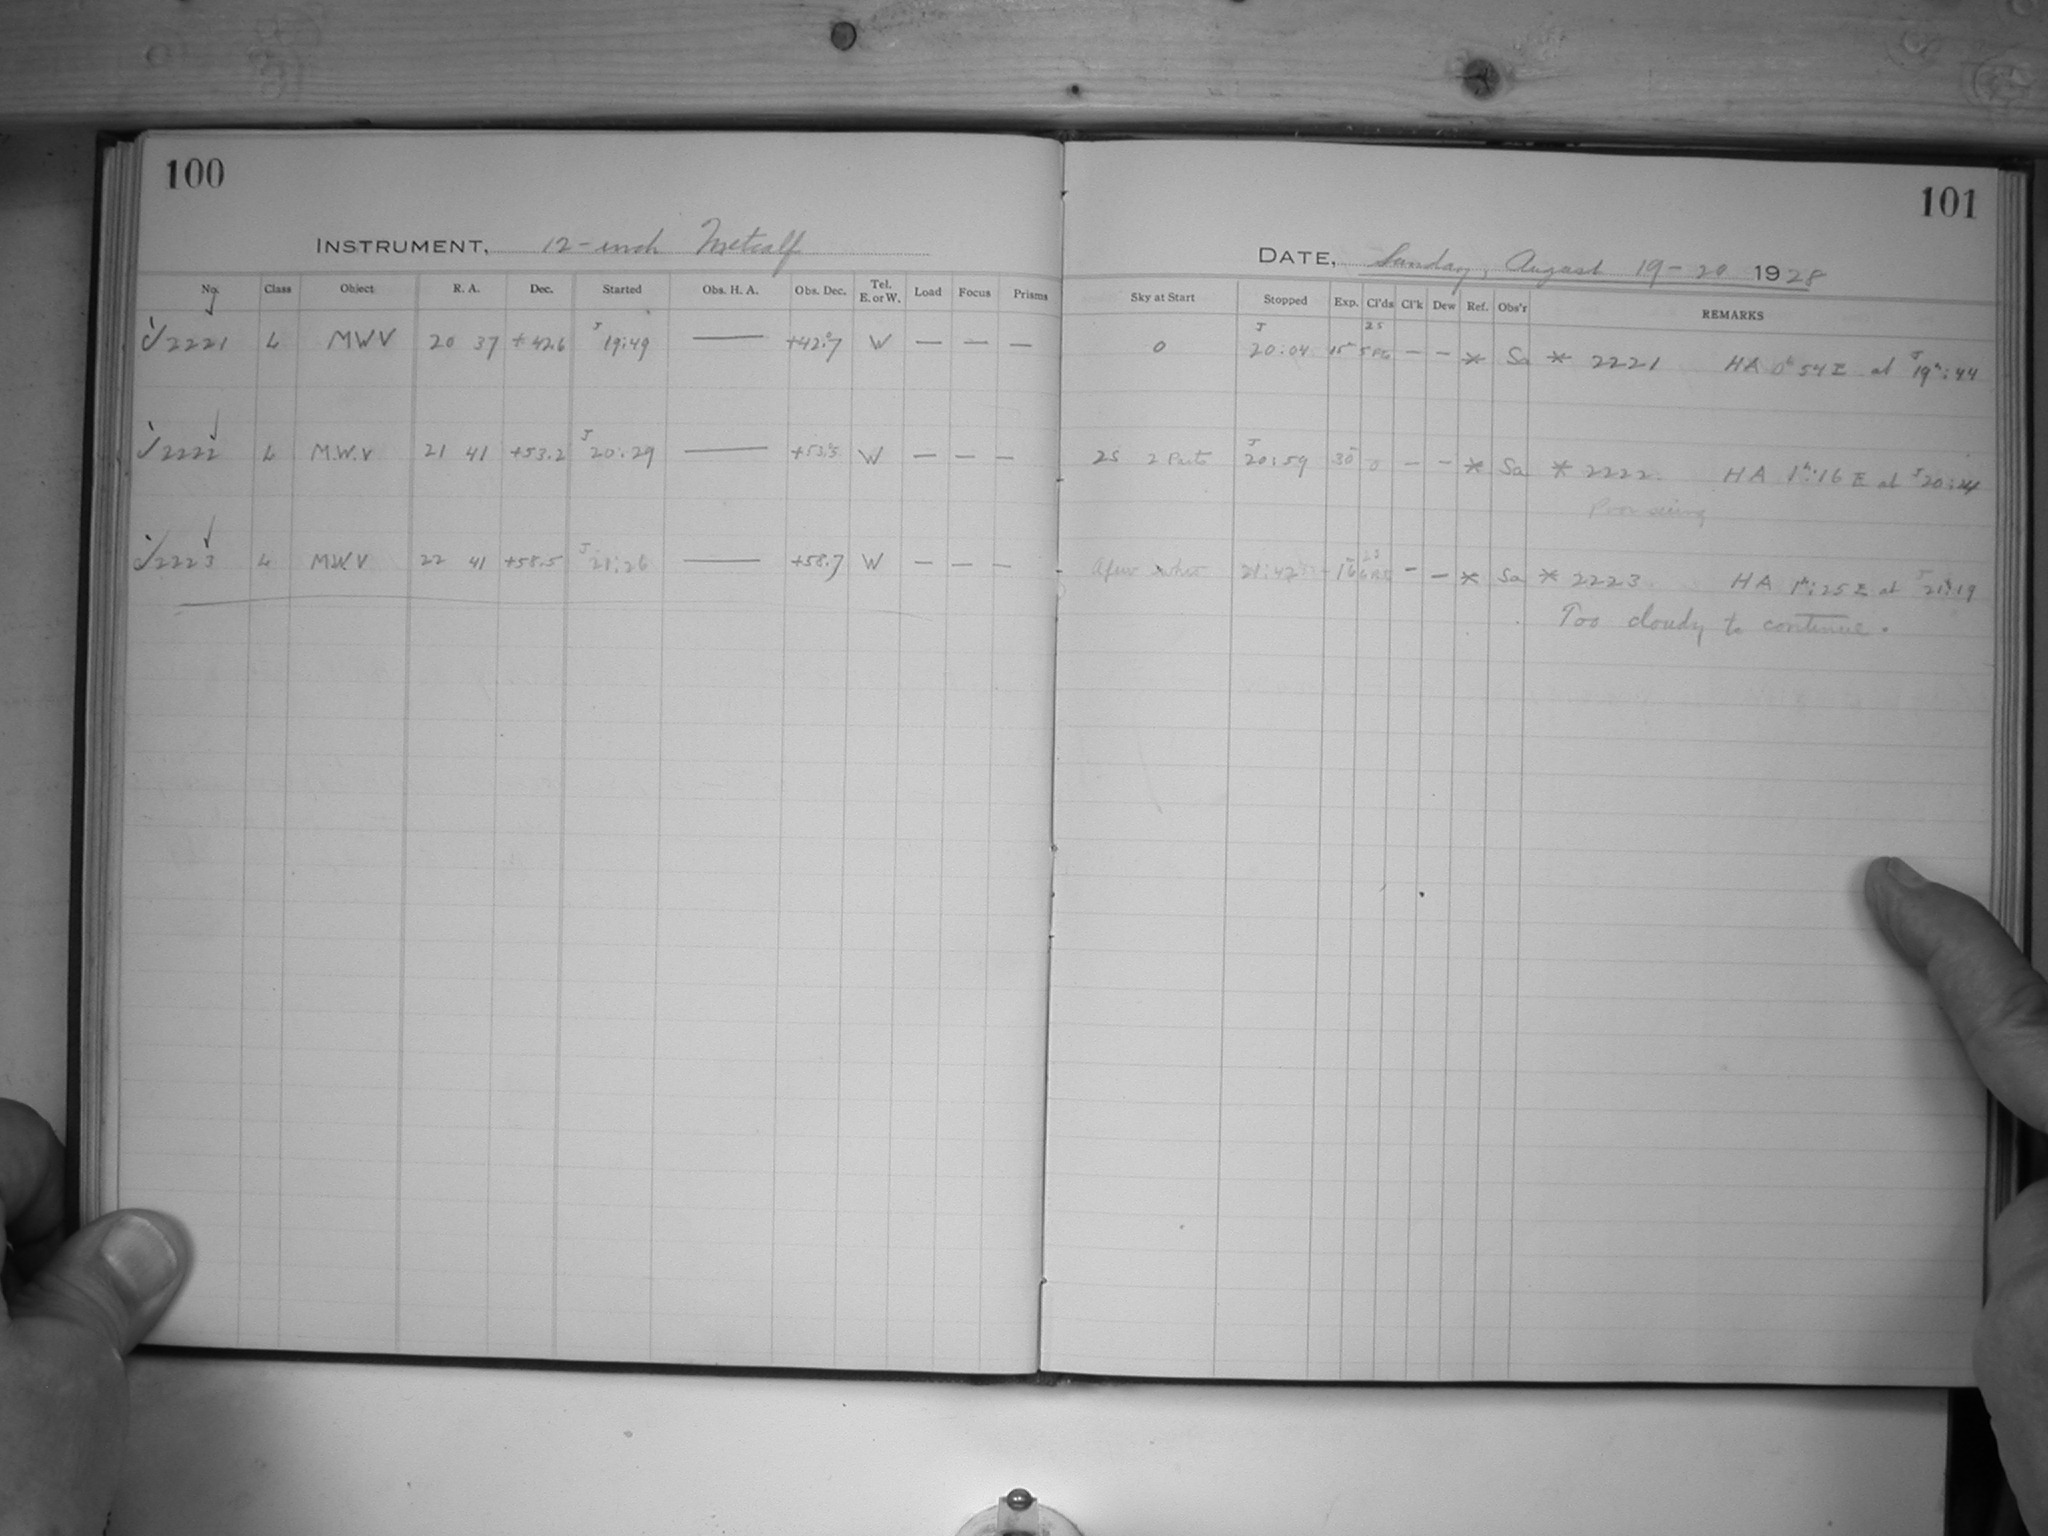 100
INSTRUMENT, 12-inch Metcalf
No. Class Object R. A. Dec. Started Obs. H. A. Obs. Dec. Tel. E. or W. Load Focus Prisms
2221 L MWV 20 37 +42.6 J 19:49 — +42.7 W — — —
2222 L M.W.V 21 41 +53.2 J 20:29 — +53.5 W — — —
2223 L M.W.V 22 41 +58.5 J 21:26 — +58.7 W — — —
101
DATE, Sunday, August 19-20 1928
Sky at Start Stopped Exp. Cl'ds Cl'k Dew Ref. Obs'r REMARKS
0 J 20:04 15 2S — — * Sa * 2221 HA 0h 54 E at J 19h:44
2S 2 Parts J 20:59 30 0 — — * Sa * 2222. HA 1h:16 E at J 20:24
Poor seeing
A few 21:42 16 2S — — * Sa * 2223 HA 1h:25 E at J 21:19
Too cloudy to continue.